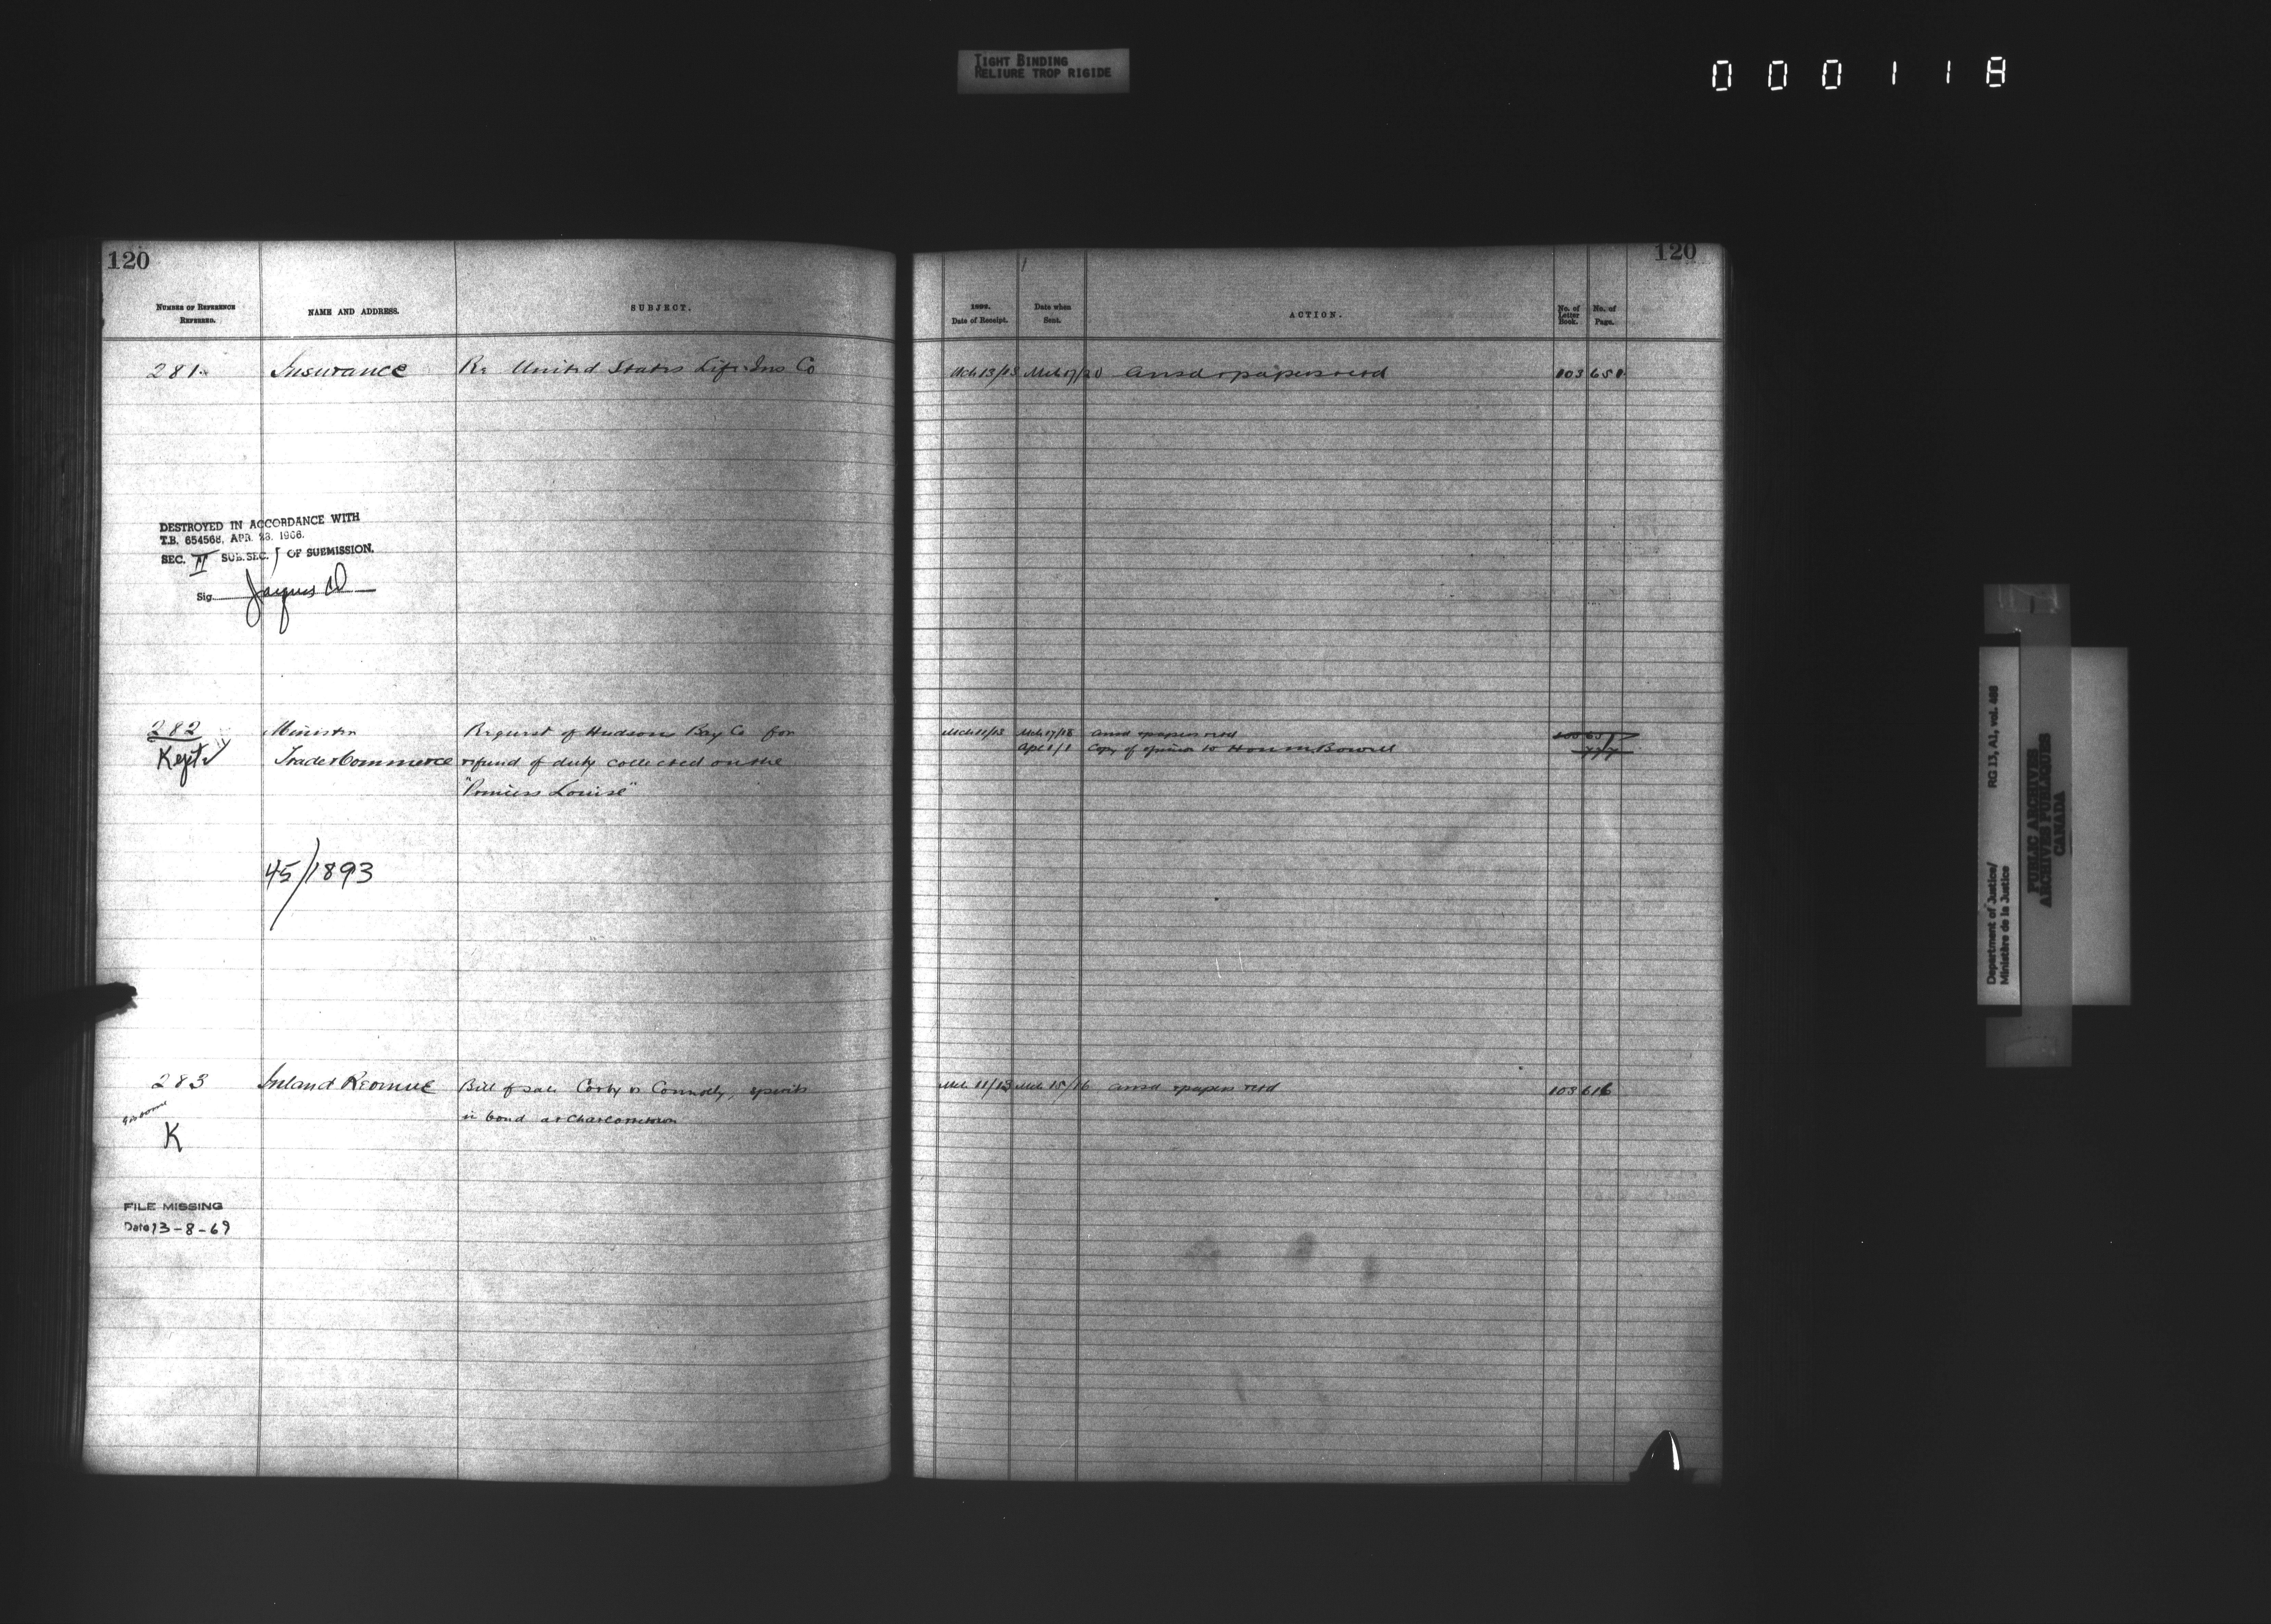 TIGHT BINDING
RELIURE TROP RIGIDE
000118
120
NUMBER OF REFERENCE REFERRED.
NAME AND ADDRESS.
SUBJECT.
281.
Insurance
Re United States Life Ins Co
DESTROYED IN ACCORDANCE WITH
T.B. 654568, APR. 28. 1966.
SEC. II SUB. SEC. OF SUBMISSION.
Sig.
282
Minister
Request of Hudsons Bay Co for
Kept
Trade & Commerce
refund of duty collected on the
"Princess Louise"
45/1893
283
Inland Revenue
Bill of sale Corby vs Connolly, spirits
in bond at Charlottetown
K
FILE MISSING
Date 13-8-69
120
1893.
Date of Receipt.
Date when Sent.
ACTION.
No. of Letter Book.
No. of Page.
Mch 13/13
Mch 17/20
Ansd & papers retd
103
Mch 11/13
Mch 17/18
Ansd & papers retd
Apl 1/1
Copy of opinion to Hon M. Bowell
Mch 11/13
Mch 15/16
Ansd & papers retd
103
616
Department of Justice/
Ministère de la Justice
RG 13, A1, vol. 488
PUBLIC ARCHIVES
ARCHIVES PUBLIQUES
CANADA